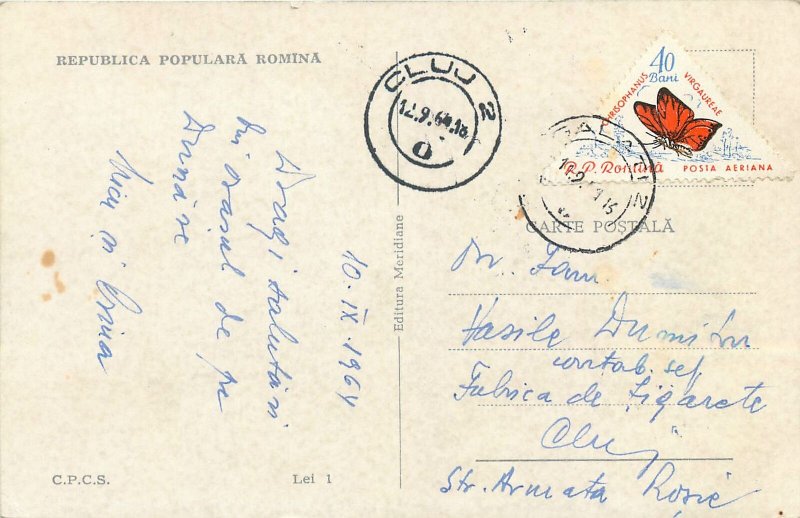 REPUBLICA POPULARĂ ROMÎNĂ
10.IX.1964
Dragi salutări
din orașul de pe
Dunăre
Nicu și
Editura Meridiane
C.P.C.S.
Lei 1
CLUJ 2
12.9.64.16
GALAȚI 2
CHRISOPHANUS VIRGAUREAE
40
Bani
R.P. Romînă POSTA AERIANA
CARTE POȘTALĂ
Fam
Vasile Dumitru
contab. șef
Fabrica de Țigarete
Cluj
Str. Armata Roșie